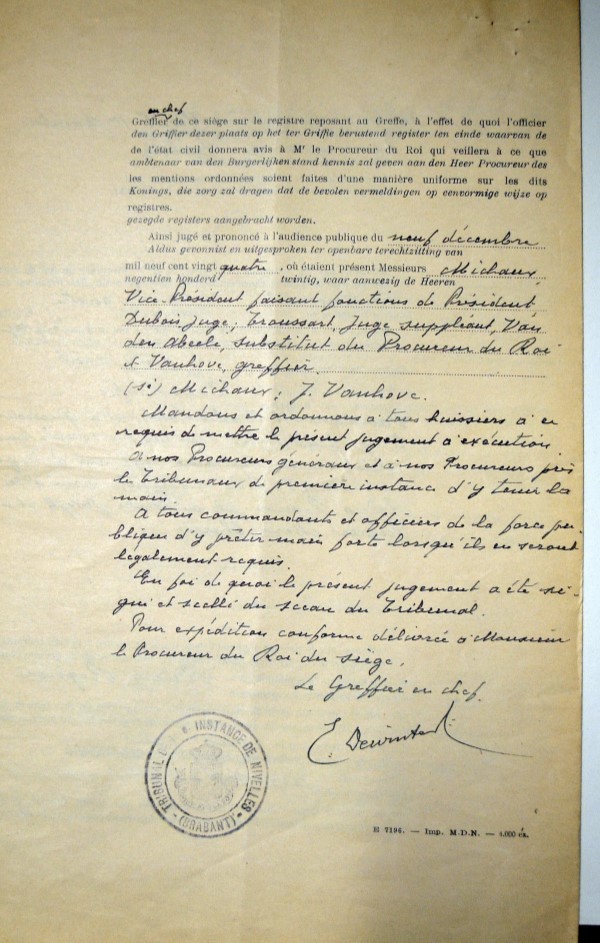 en chef
Greffier de ce siège sur le registre reposant au Greffe, à l'effet de quoi l'officier
den Griffier dezer plaats op het ter Griffie berustend register ten einde waarvan de
de l'état civil donnera avis à Mr le Procureur du Roi qui veillera à ce que
ambtenaar van den Burgerlijken stand kennis zal geven aan den Heer Procureur des
les mentions ordonnées soient faites d'une manière uniforme sur les dits
Konings, die zorg zal dragen dat de bevolen vermeldingen op eenvormige wijze op
registres.
gezegde registers aangebracht worden.
Ainsi jugé et prononcé à l'audience publique du neuf décembre
Aldus gevonnist en uitgesproken ter openbare terechtzitting van
mil neuf cent vingt quatre, où étaient présent Messieurs Michaux,
negentien honderd twintig, waar aanwezig de Heeren
Vice-Président faisant fonctions de Président
Dubois juge; Troussart, Juge suppléant, Van
den Abeele, substitut du Procureur du Roi
et Vanhove, greffier.
(sé) Michaux; J. Vanhove.
Mandons et ordonnons à tous huissiers à ce
requis de mettre le présent jugement à exécution.
A nos Procureurs généraux et à nos Procureurs près
les Tribunaux de première instance d'y tenir la
main.
A tous commandants et officiers de la force pu-
blique d'y prêter main forte lorsqu'ils en seront
légalement requis.
En foi de quoi le présent jugement a été si-
gné et scellé du sceau du Tribunal.
Pour expédition conforme délivrée à Monsieur
le Procureur du Roi du siège.
Le Greffier en chef.
TRIBUNAL INSTANCE DE NIVELLES
(BRABANT)
E 7196. — Imp. M.D.N. — 4.000 ex.